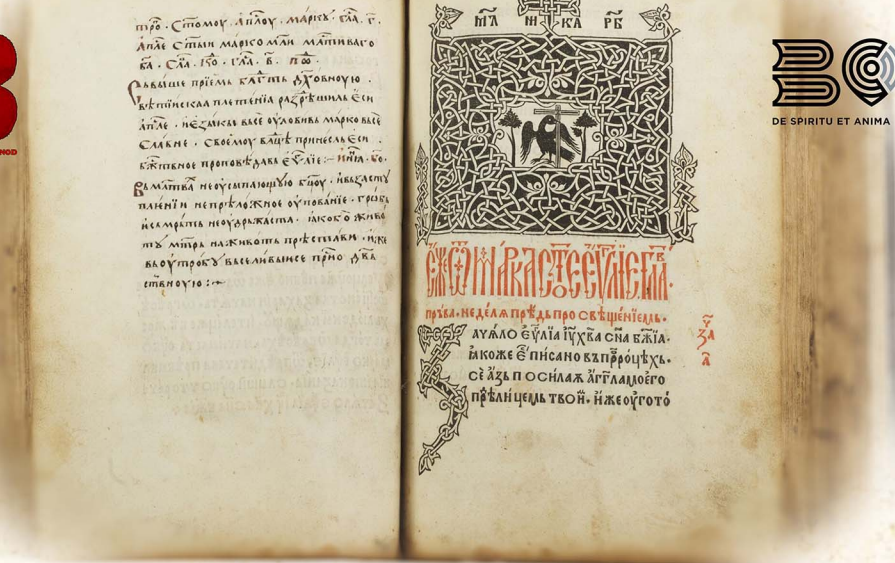 тро . Стомоу . Апⷭ҇лоу . маркꙋ . гла . г҃ .
Апⷭ҇ле Стыи марко моли мативаго
ба . Сла . Ко . гла . в҃ .
Съвыше прїемь благⷣть дх҃овноую .
вѣтїискаа плетенїа разрѣшиль Еси
апⷭ҇ле . и Езыкы все оуловивь марко все
Славне . Своемоу влⷣцѣ принесль Еси .
бжⷭ҇твное проповѣдавь Еѵⷢ҇лїе :~
Въ млⷮвахь неоусыпающоую бц҃оу .
пленїи и непрѣложное оупованїе . гробь
и самрьть неоудрьжаста . iакоⷤ о живо
тꙋ мт҃рь на животь прѣстави . иже
вь оутробꙋ вьселивыисе прⷭ҇но дв҃ь
ствноую :~
Еже Ѿ Марка Стое Еѵⷢ҇лїе гла҃ . в҃
прьва . недѣля прѣдь просвѣщенїемь .
ачѧло Еѵⷢ҇лїа Іѵ҃ хв҃а сн҃а бж҃їа .
iакоже Е҃ писано въ пррⷪ҇цѣхь .
се азь посилаѧ агг҃ла моего
прⷣѣ лицемь твоим . иже оугото
DE SPIRITU ET ANIMA